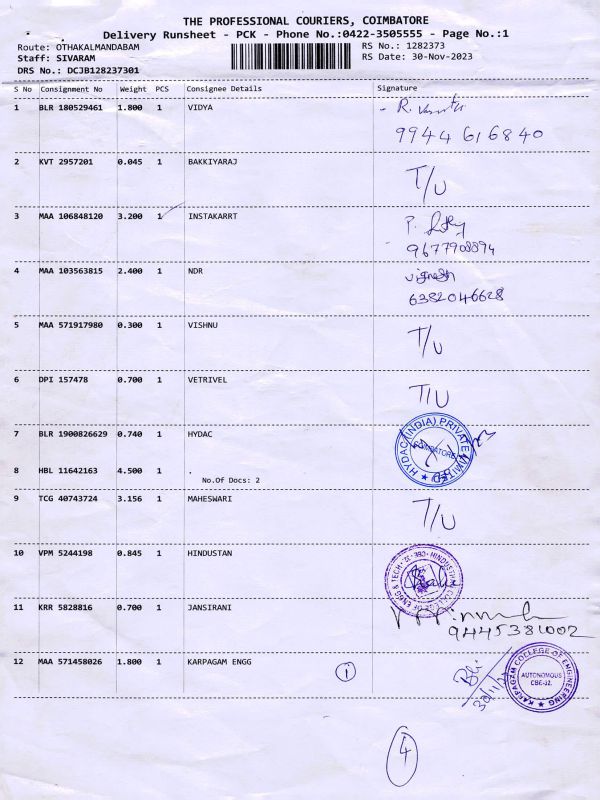 THE PROFESSIONAL COURIERS, COIMBATORE
Delivery Runsheet - PCK - Phone No.:0422-3505555 - Page No.:1
Route: OTHAKALMANDABAM
RS No.: 1282373
Staff: SIVARAM
RS Date: 30-Nov-2023
DRS No.: DCJB128237301
S No Consignment No Weight PCS Consignee Details Signature
1 BLR 180529461 1.800 1 VIDYA
9944616840
2 KVT 2957201 0.045 1 BAKKIYARAJ T/U
3 MAA 106848120 3.200 1 INSTAKARRT
9677908894
4 MAA 103563815 2.400 1 NDR vignesh
6382046628
5 MAA 571917980 0.300 1 VISHNU T/U
6 DPI 157478 0.700 1 VETRIVEL T/U
7 BLR 1900826629 0.740 1 HYDAC HYDAC (INDIA) PRIVATE LIMITED
8 HBL 11642163 4.500 1
No.Of Docs: 2
9 TCG 40743724 3.156 1 MAHESWARI T/U
10 VPM 5244198 0.845 1 HINDUSTAN
11 KRR 5828816 0.700 1 JANSIRANI
9445381002
12 MAA 571458026 1.800 1 KARPAGAM ENGG 1
KARPAGAM COLLEGE OF ENGINEERING
AUTONOMOUS
CBE-32.
4